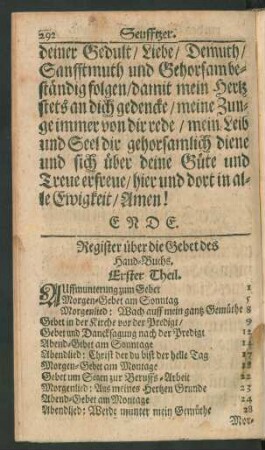 292 Seufftzer.
deiner Gedult / Liebe / Demuth /
Sanfftmuth und Gehorsam be-
ständig folgen / damit mein Hertz
stets an dich gedencke / meine Zun-
ge immer von dir rede / mein Leib
und Seel dir gehorsamlich diene
und sich über deine Güte und
Treue erfreue / hier und dort in al-
le Ewigkeit / Amen!
ENDE.
Register über die Gebet des
Hand-Buchs.
Erster Theil.
AUffmunterung zum Gebet 1
Morgen-Gebet am Sonntag 5
Morgenlied: Wach auff mein gantz Gemüthe 8
Gebet in der Kirche vor der Predigt / 9
Gebet und Dancksagung nach der Predigt 12
Abend-Gebet am Sonntage 14
Abendlied: Christ der du bist der helle Tag 17
Morgen-Gebet am Montage 18
Gebet um Segen zur Beruffs-Arbeit 22
Morgenlied: Aus meines Hertzen Grunde 23
Abend-Gebet am Montage 24
Abendlied: Werde munter mein Gemüthe 28
Mor-